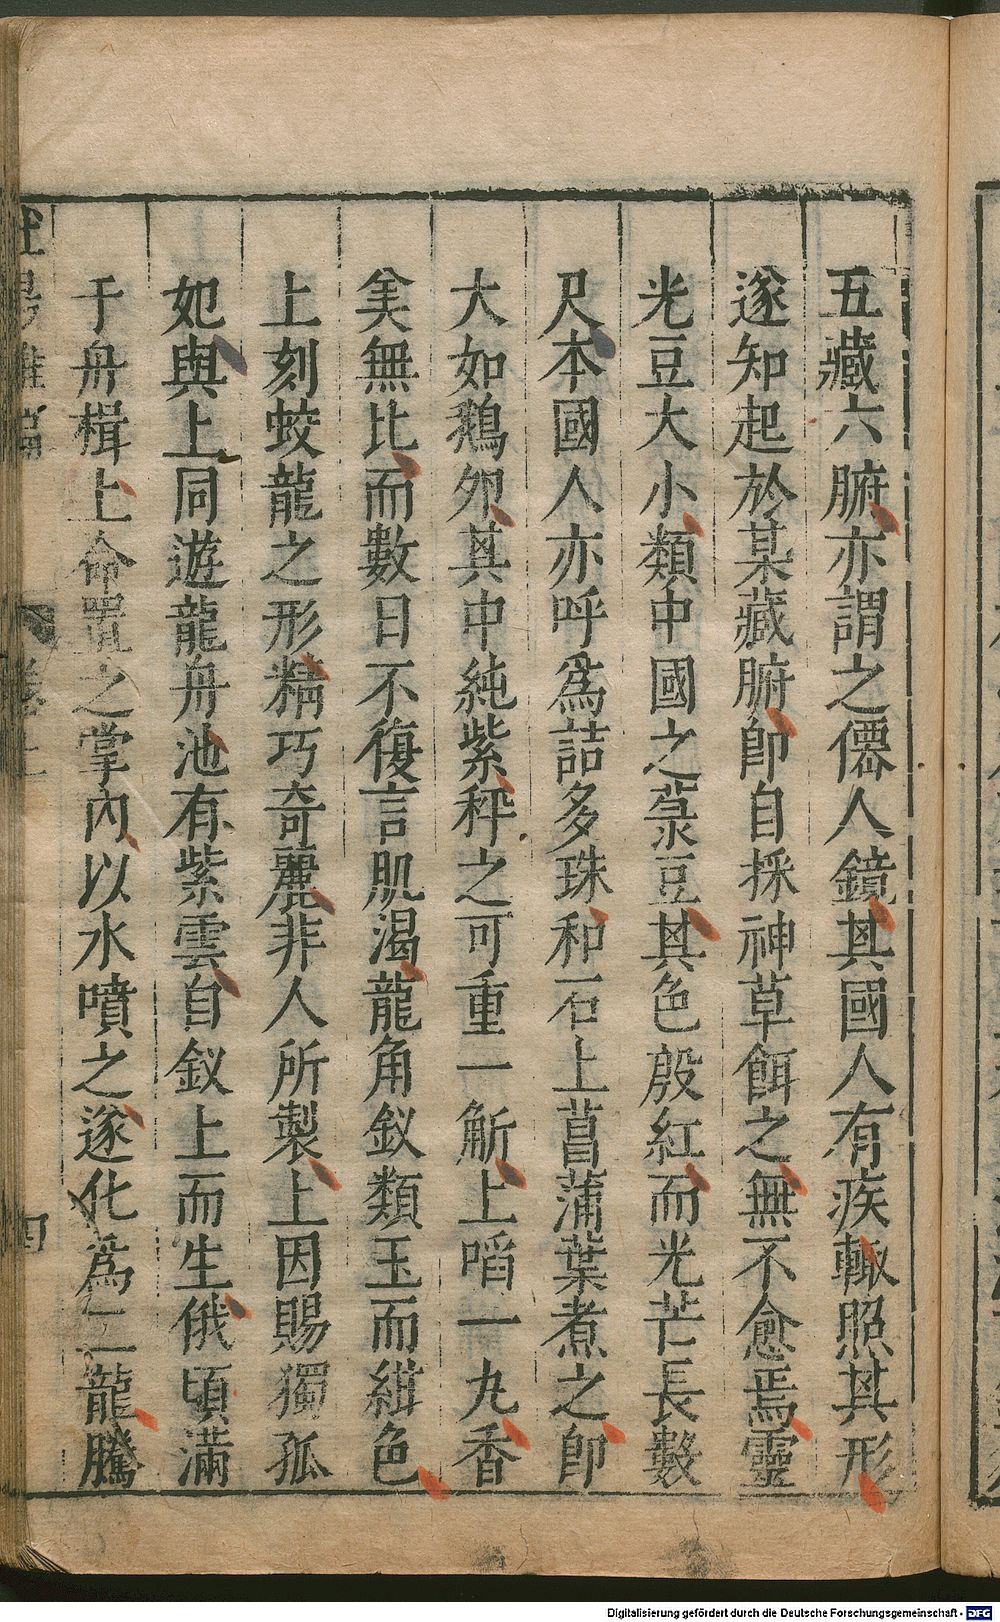 五藏六腑亦謂之僊人鏡其國人有疾輙照其形
遂知起於某藏腑即自採神草餌之無不愈焉靈
光豆大小類中國之菉豆其色殷紅而光芒長數
尺本國人亦呼爲詰多珠和石上菖蒲葉煮之即
大如鵝卵其中純紫秤之可重一觔上啗一丸香
羙無比而數日不復言肌渴龍角釵類玉而緝色
上刻蛟龍之形精巧奇麗非人所製上因賜獨孤
妃與上同遊龍舟池有紫雲自釵上而生俄頃滿
于舟楫上命置之掌內以水噴之遂化爲二龍騰
杜陽雜編 卷上 四
Digitalisierung gefördert durch die Deutsche Forschungsgemeinschaft - DFG